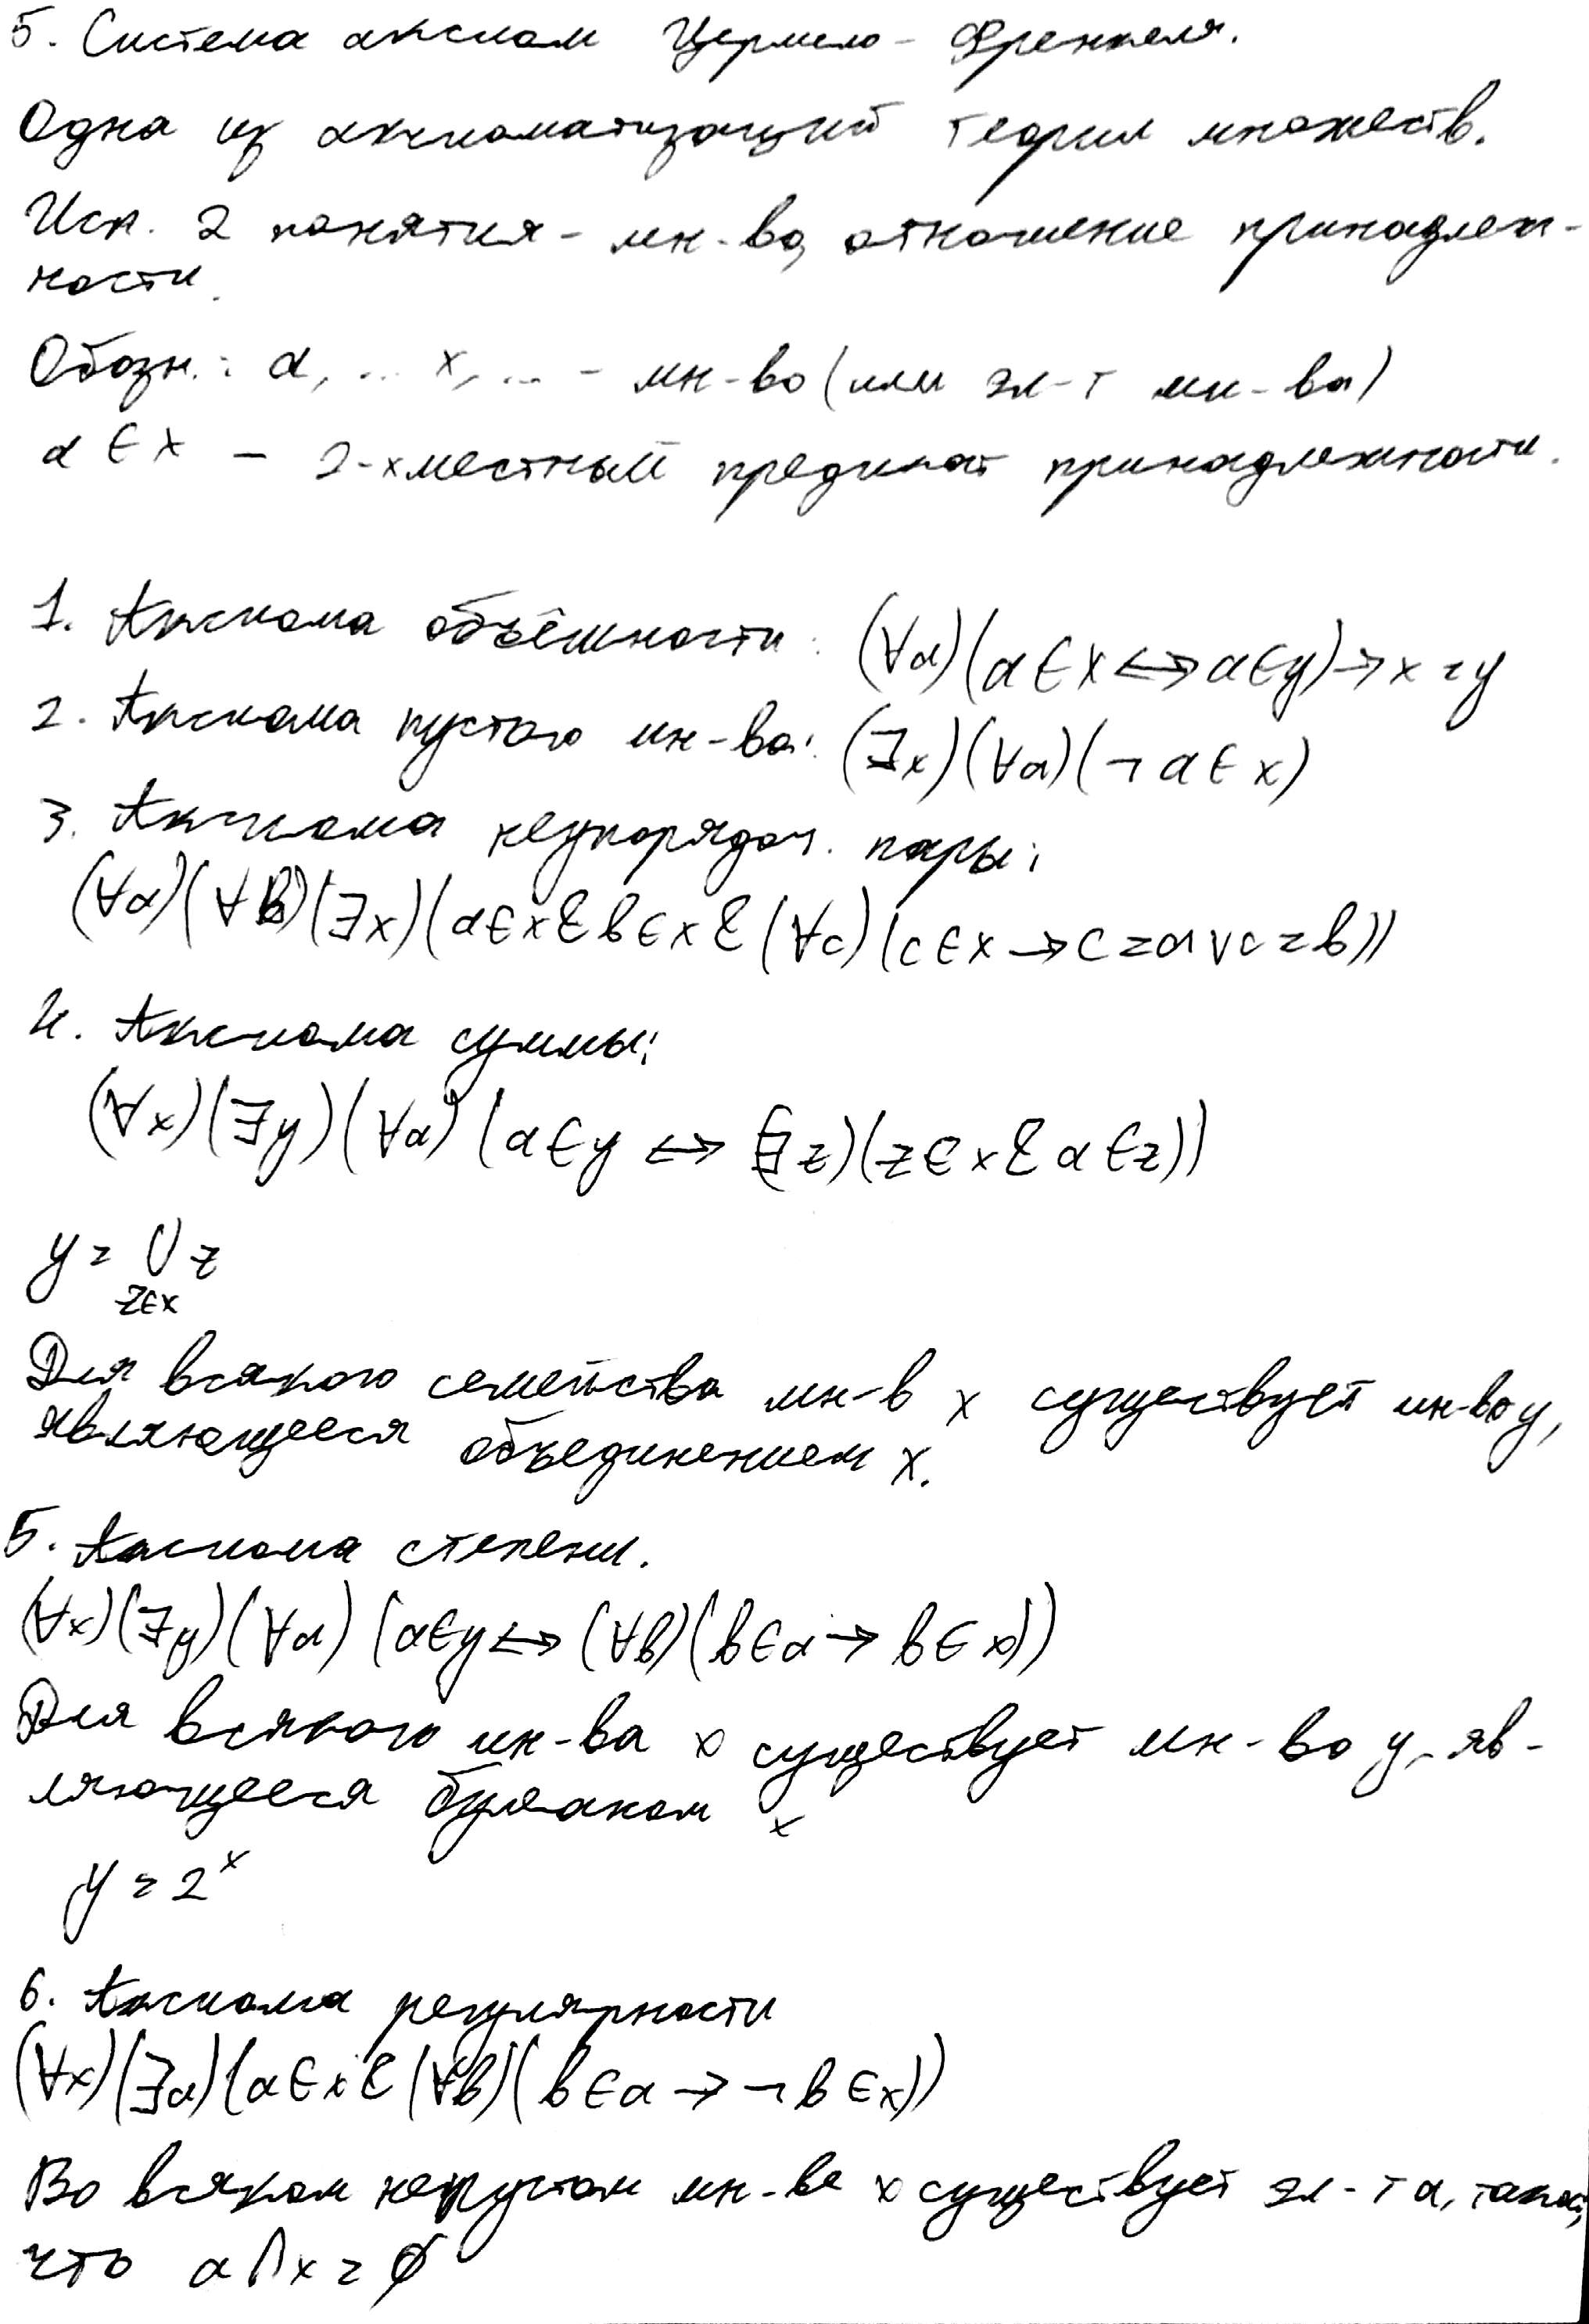 5. Система аксиом Цермело - Френкеля.
Одна из аксиоматизаций теории множеств.
Исп. 2 понятия - мн-во, отношение принадлеж-
ности.
Обозн.: a, .. x, ... - мн-во (или эл-т мн-ва)
a ∈ x - 2-хместный предикат принадлежности.
1. Аксиома объёмности: (∀a)(a ∈ x ↔ a ∈ y) → x = y
2. Аксиома пустого мн-ва: (∃x)(∀a)(¬ a ∈ x)
3. Аксиома неупорядоч. пары:
(∀a)(∀b)(∃x)(a ∈ x & b ∈ x & (∀c)(c ∈ x → c = a ∨ c = b))
4. Аксиома суммы:
(∀x)(∃y)(∀a)(a ∈ y ↔ (∃z)(z ∈ x & a ∈ z))
y = ∪ z
z∈x
Для всякого семейства мн-в x существует мн-во y,
являющееся объединением x.
5. Аксиома степени.
(∀x)(∃y)(∀a)(a ∈ y ↔ (∀b)(b ∈ a → b ∈ x))
Для всякого мн-ва x существует мн-во y, яв-
ляющееся булеаном x
y = 2^x
6. Аксиома регулярности
(∀x)(∃a)(a ∈ x & (∀b)(b ∈ a → ¬ b ∈ x))
Во всяком непустом мн-ве x существует эл-т a, такой,
что a ∩ x = ∅